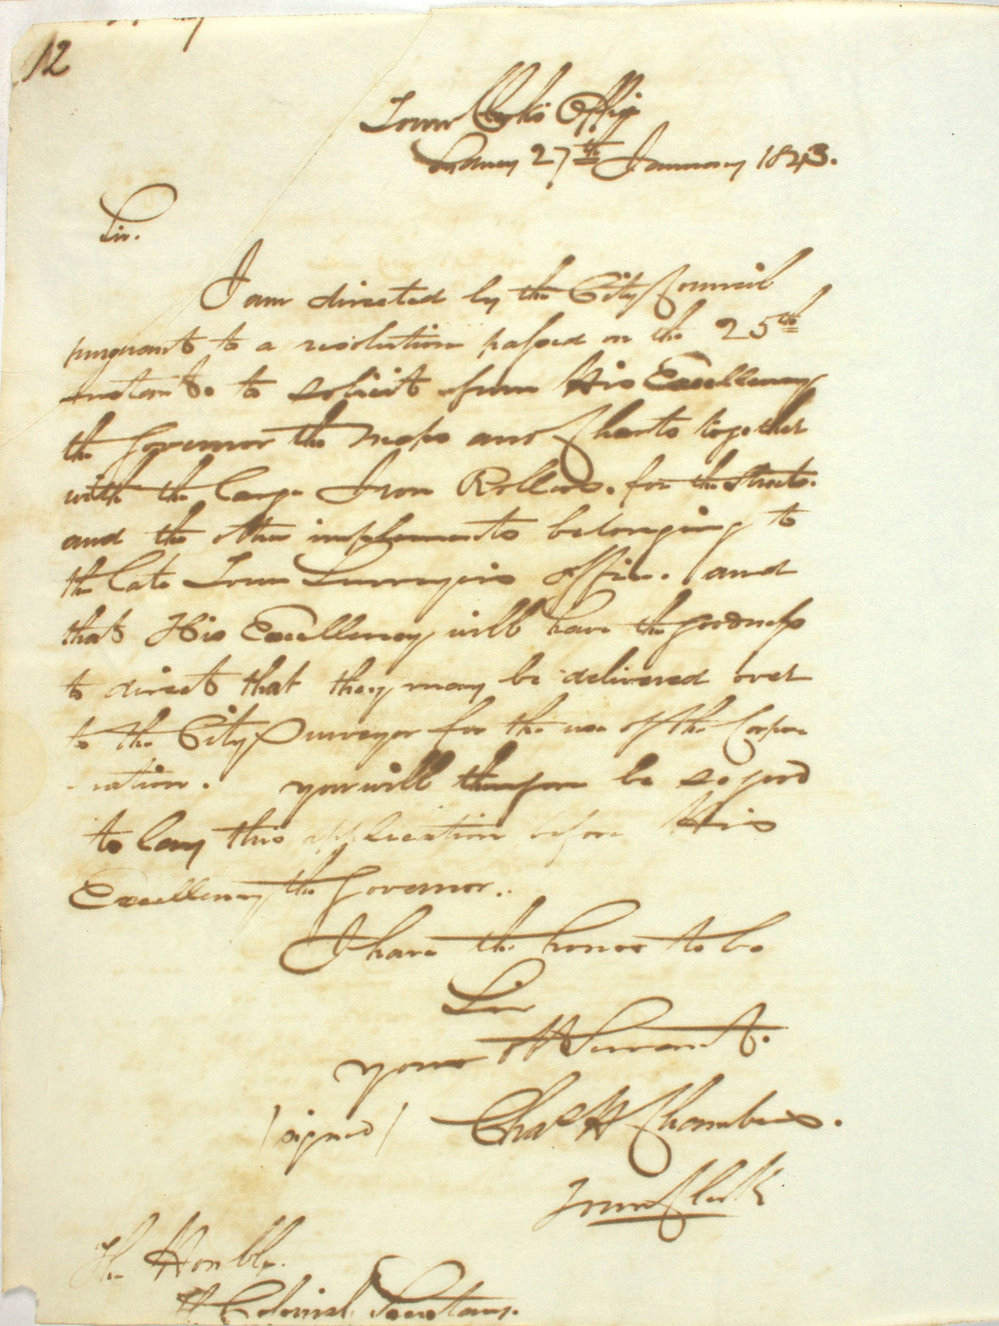 12
Town Clerk's Office
Sydney 27th January 1843.
Sir.
I am directed by the City Council
pursuant to a resolution passed on the 25th
instant. to solicit from His Excellency
the Governor the maps and Charts together
with the large Iron Rollers. for the Streets.
and the other implements belonging to
the late Town Surveyors office. and
that His Excellency will have the goodness
to direct that they may be delivered over
to the City Surveyor for the use of the Corpo
ration. you will therefore be so good
to lay this application before His
Excellency the Governor..
I have the honor to be
Sir
your Servant.
(signed) Chas H Chambers.
Town Clerk
The Honble.
Colonial Secretary.